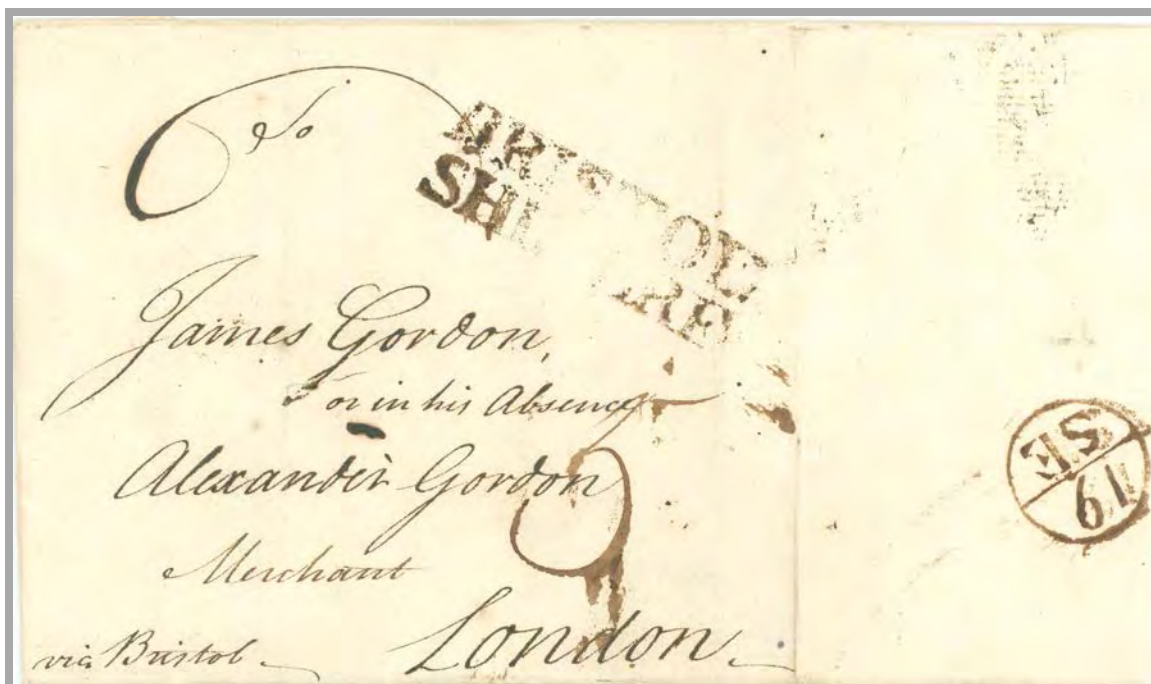 To
BRISTOL
SHIP LRE
James Gordon,
or in his Absence
Alexander Gordon
Merchant
London
via Bristol
SE
19